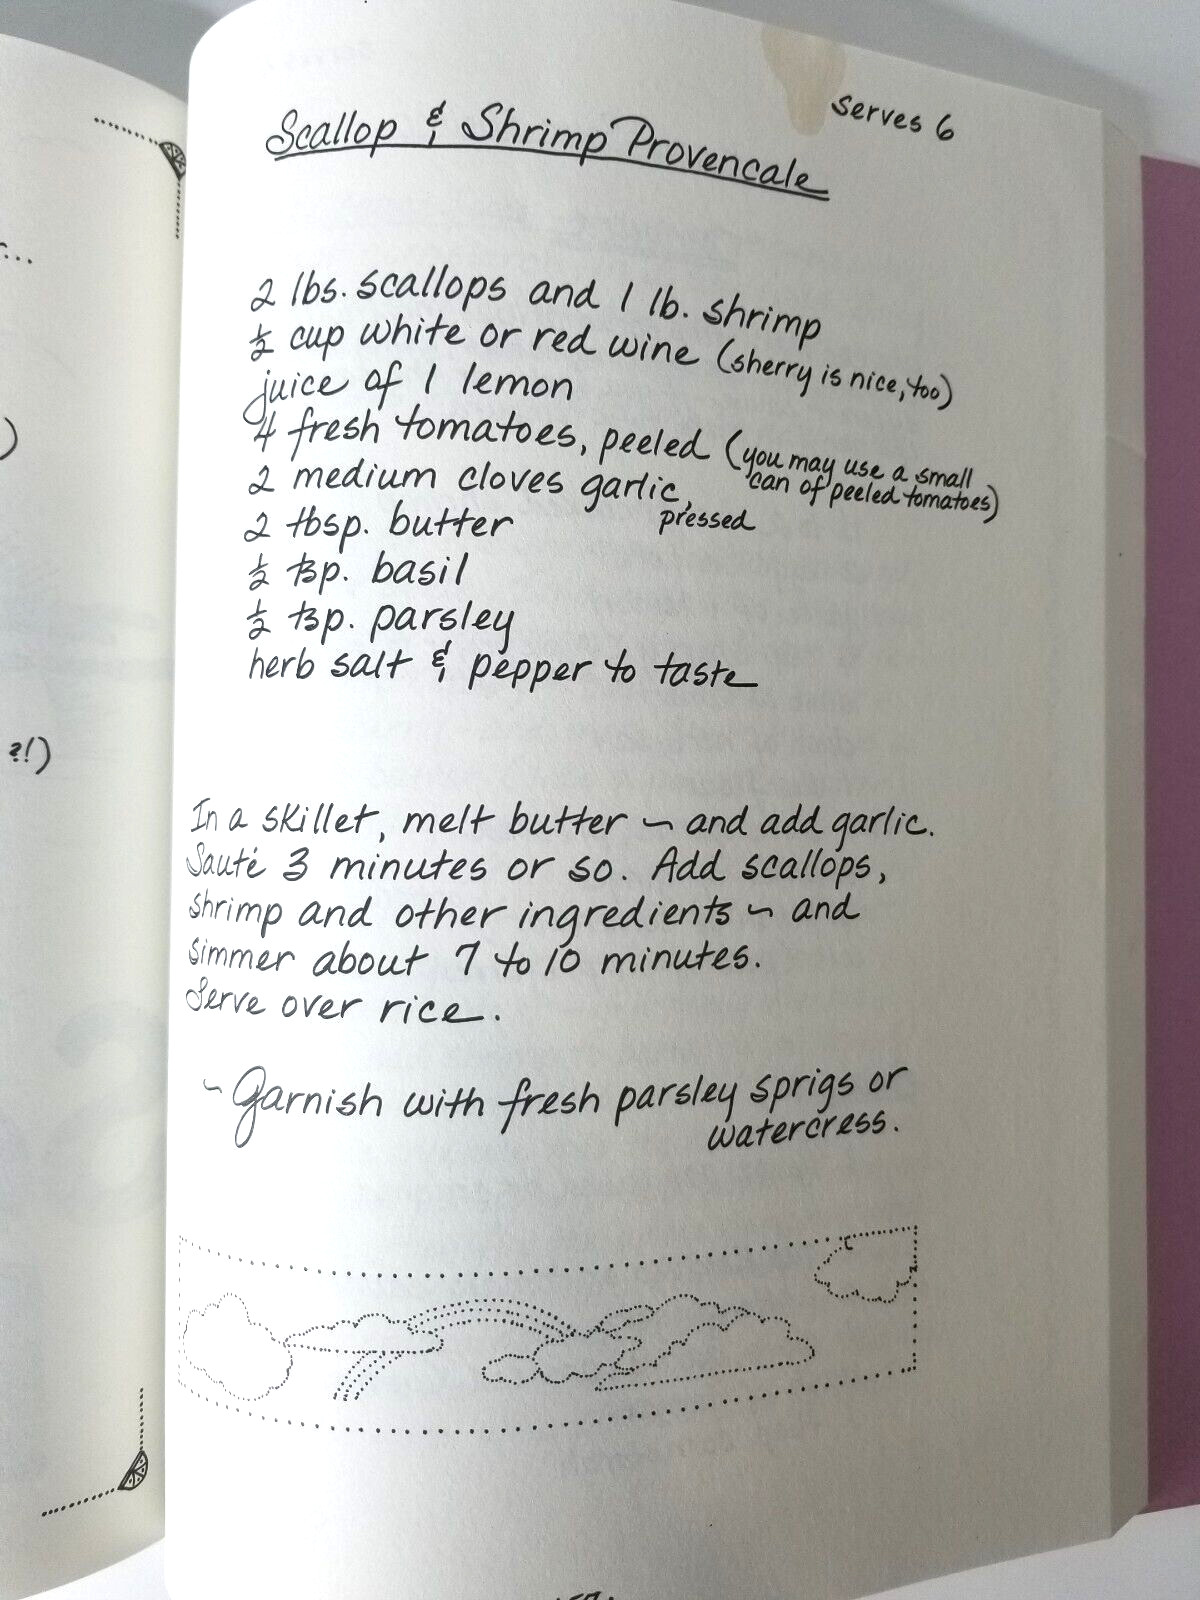 Serves 6
Scallop & Shrimp Provencale
2 lbs. scallops and 1 lb. shrimp
½ cup white or red wine (sherry is nice, too)
juice of 1 lemon
4 fresh tomatoes, peeled (you may use a small
can of peeled tomatoes)
2 medium cloves garlic,
pressed
2 tbsp. butter
½ tsp. basil
½ tsp. parsley
herb salt & pepper to taste
In a skillet, melt butter ~ and add garlic.
Sauté 3 minutes or so. Add scallops,
shrimp and other ingredients ~ and
simmer about 7 to 10 minutes.
Serve over rice.
~ Garnish with fresh parsley sprigs or
watercress.
...
)
?!)